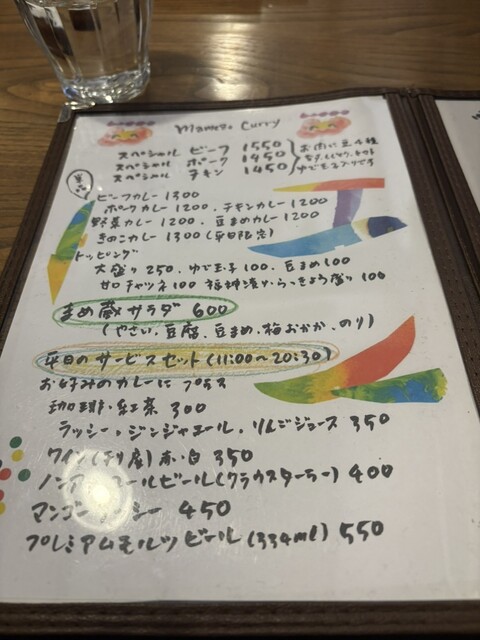 Curry
スペシャル ビーフ 1550
スペシャル ポーク 1450
スペシャル チキン 1450
お肉に豆4種
ゆで玉子入りです
ビーフカレー 1300
ポークカレー 1200、チキンカレー 1200
野菜カレー 1200、豆まめカレー 1200
きのこカレー 1300 (平日限定)
トッピング
大盛り 250、ゆで玉子 100、豆まめ 100
甘口チャツネ 100 福神漬け・らっきょう盛り 100
まめ蔵サラダ 600
(やさい、豆腐、豆まめ、梅おかか、のり)
平日のサービスセット (11:00〜20:30)
お好みのカレーに プラス
珈琲・紅茶 300
ラッシー、ジンジャエール、りんごジュース 350
ワイン(チリ産) 赤・白 350
ノンアルコールビール(クラウスターラー) 400
マンゴーラッシー 450
プレミアムモルツビール (334ml) 550